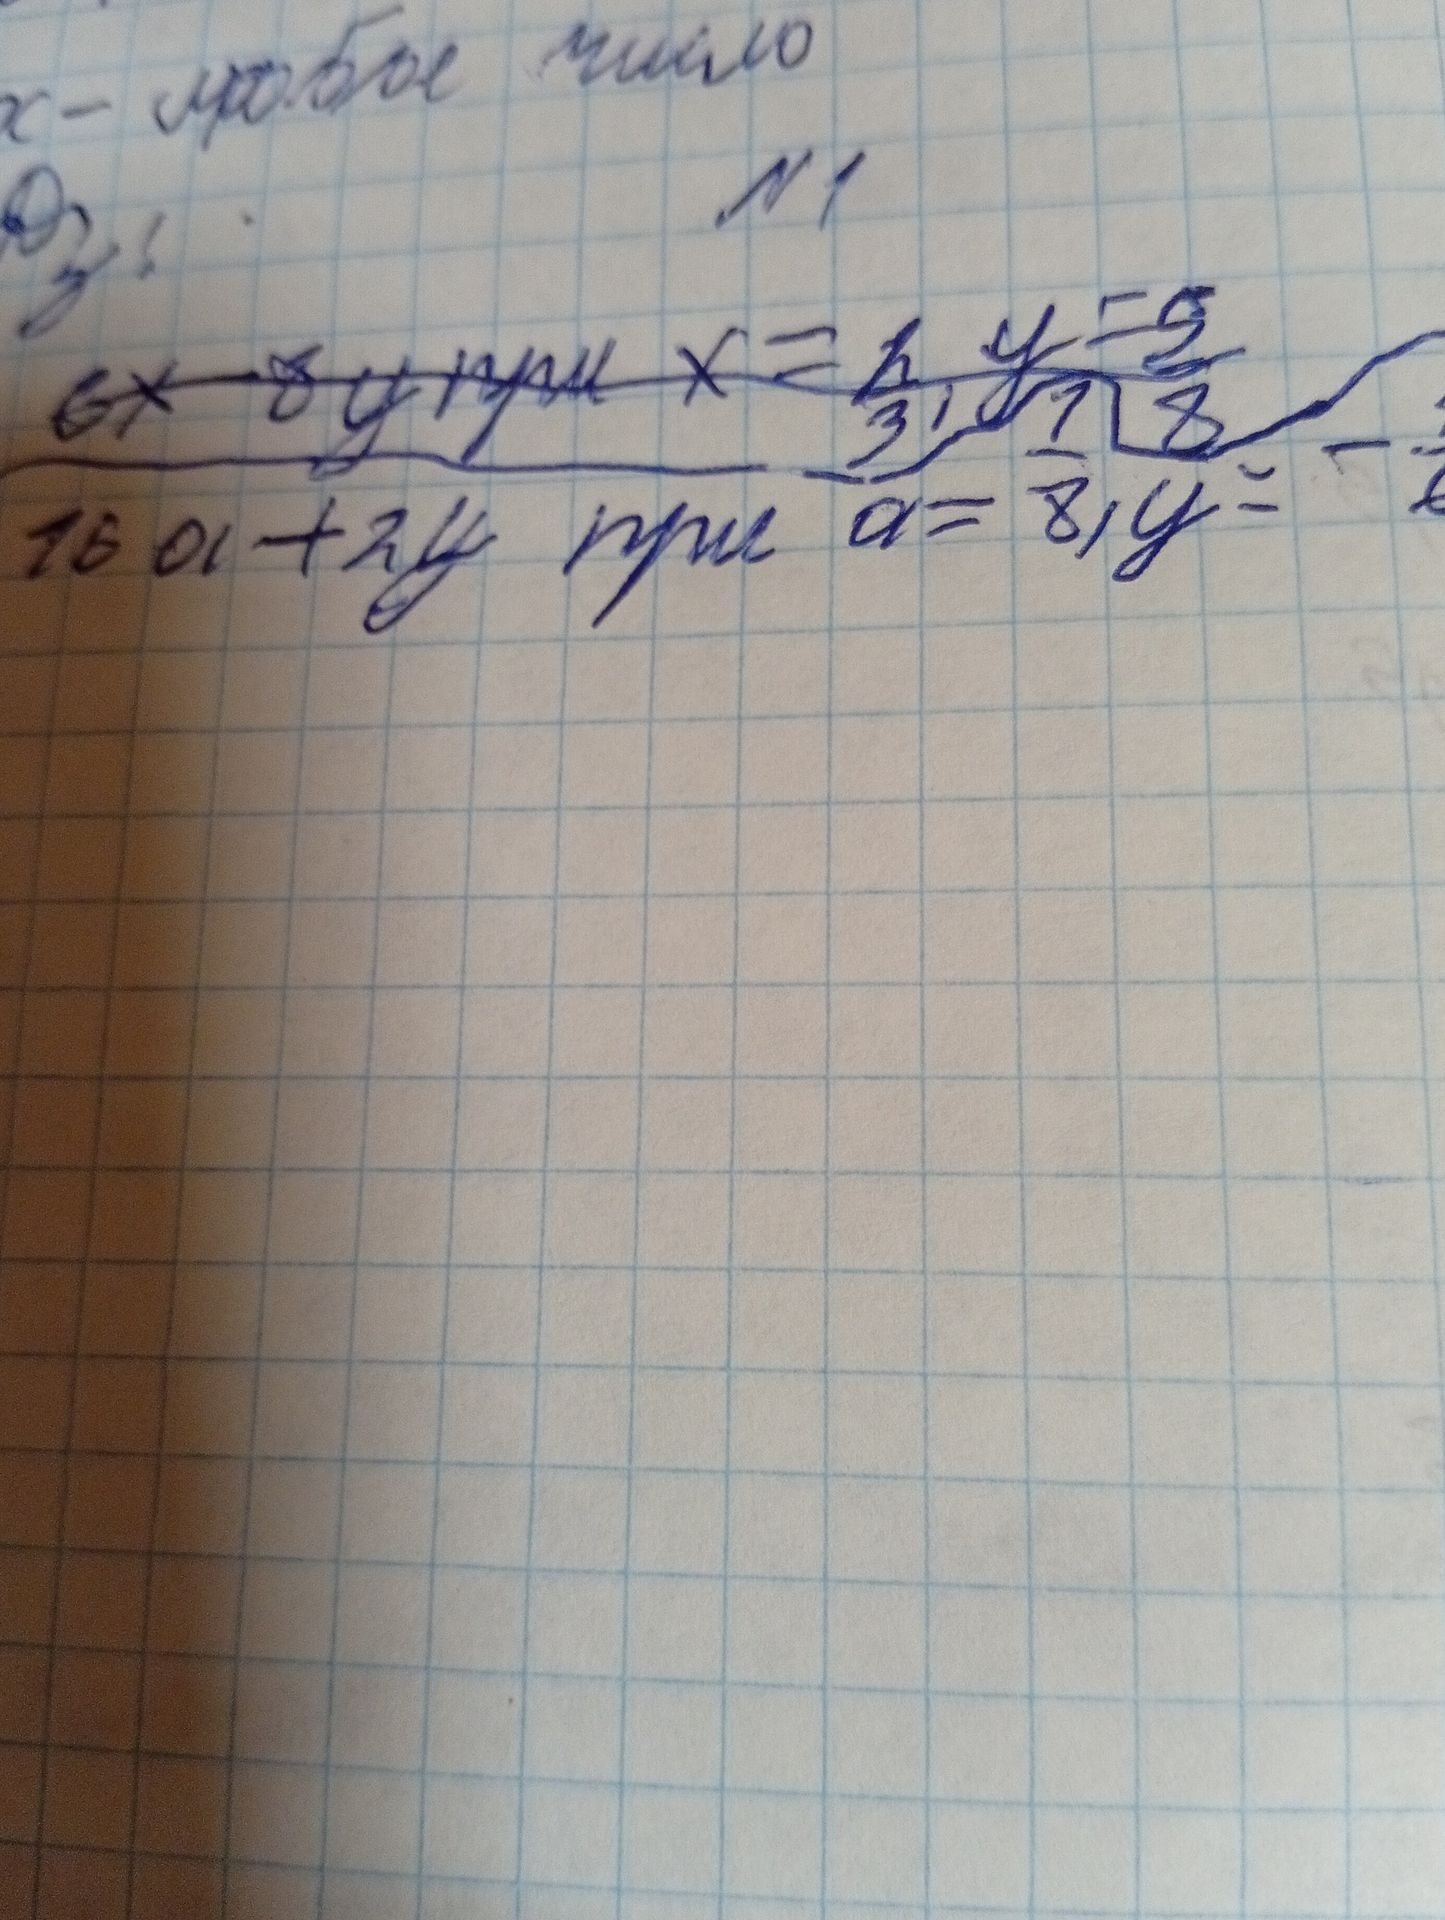 x - любое число
Дз: №1
6x - 8y при x = 2/3, y = 5/8
16a + 2y при a = 1/8, y = - 1/6